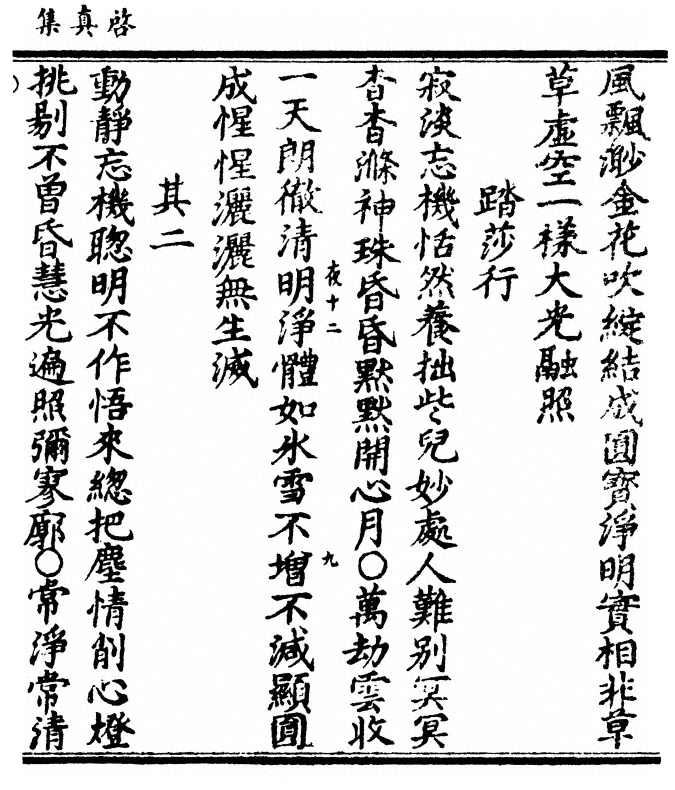 啓真集
風飄渺金花吹綻結成圓寶淨明實相非草
草虛空一樣大光融照
踏莎行
寂淡忘機恬然養拙些兒妙處人難別冥冥
杳杳滌神珠昏昏默默開心月〇萬劫雲收
夜十二
九
一天朗徹清明淨體如氷雪不增不減顯圓
成惺惺灑灑無生滅
其二
動靜忘機聦明不作悟來緫把塵情削心燈
挑剔不曾昏慧光遍照彌寥廓〇常淨常清